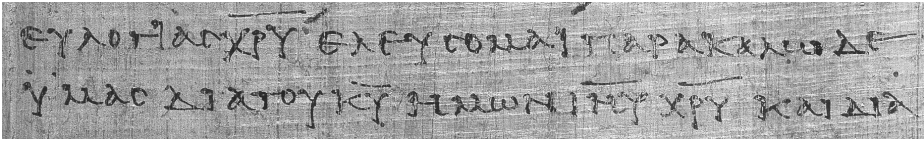 ευλογιας χ̅ρ̅υ̅ ελευσομαι παρακαλω δε
υμας δια του κ̅υ̅ ημων ι̅η̅υ̅ χ̅ρ̅υ̅ και δια